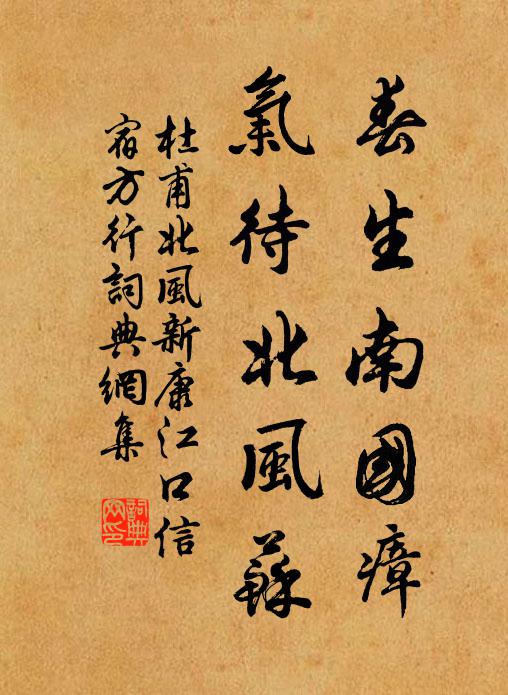 春生南國瘴
氣待北風蘇
杜甫北風新康江口信
宿方行詞典網集
詞典
网印